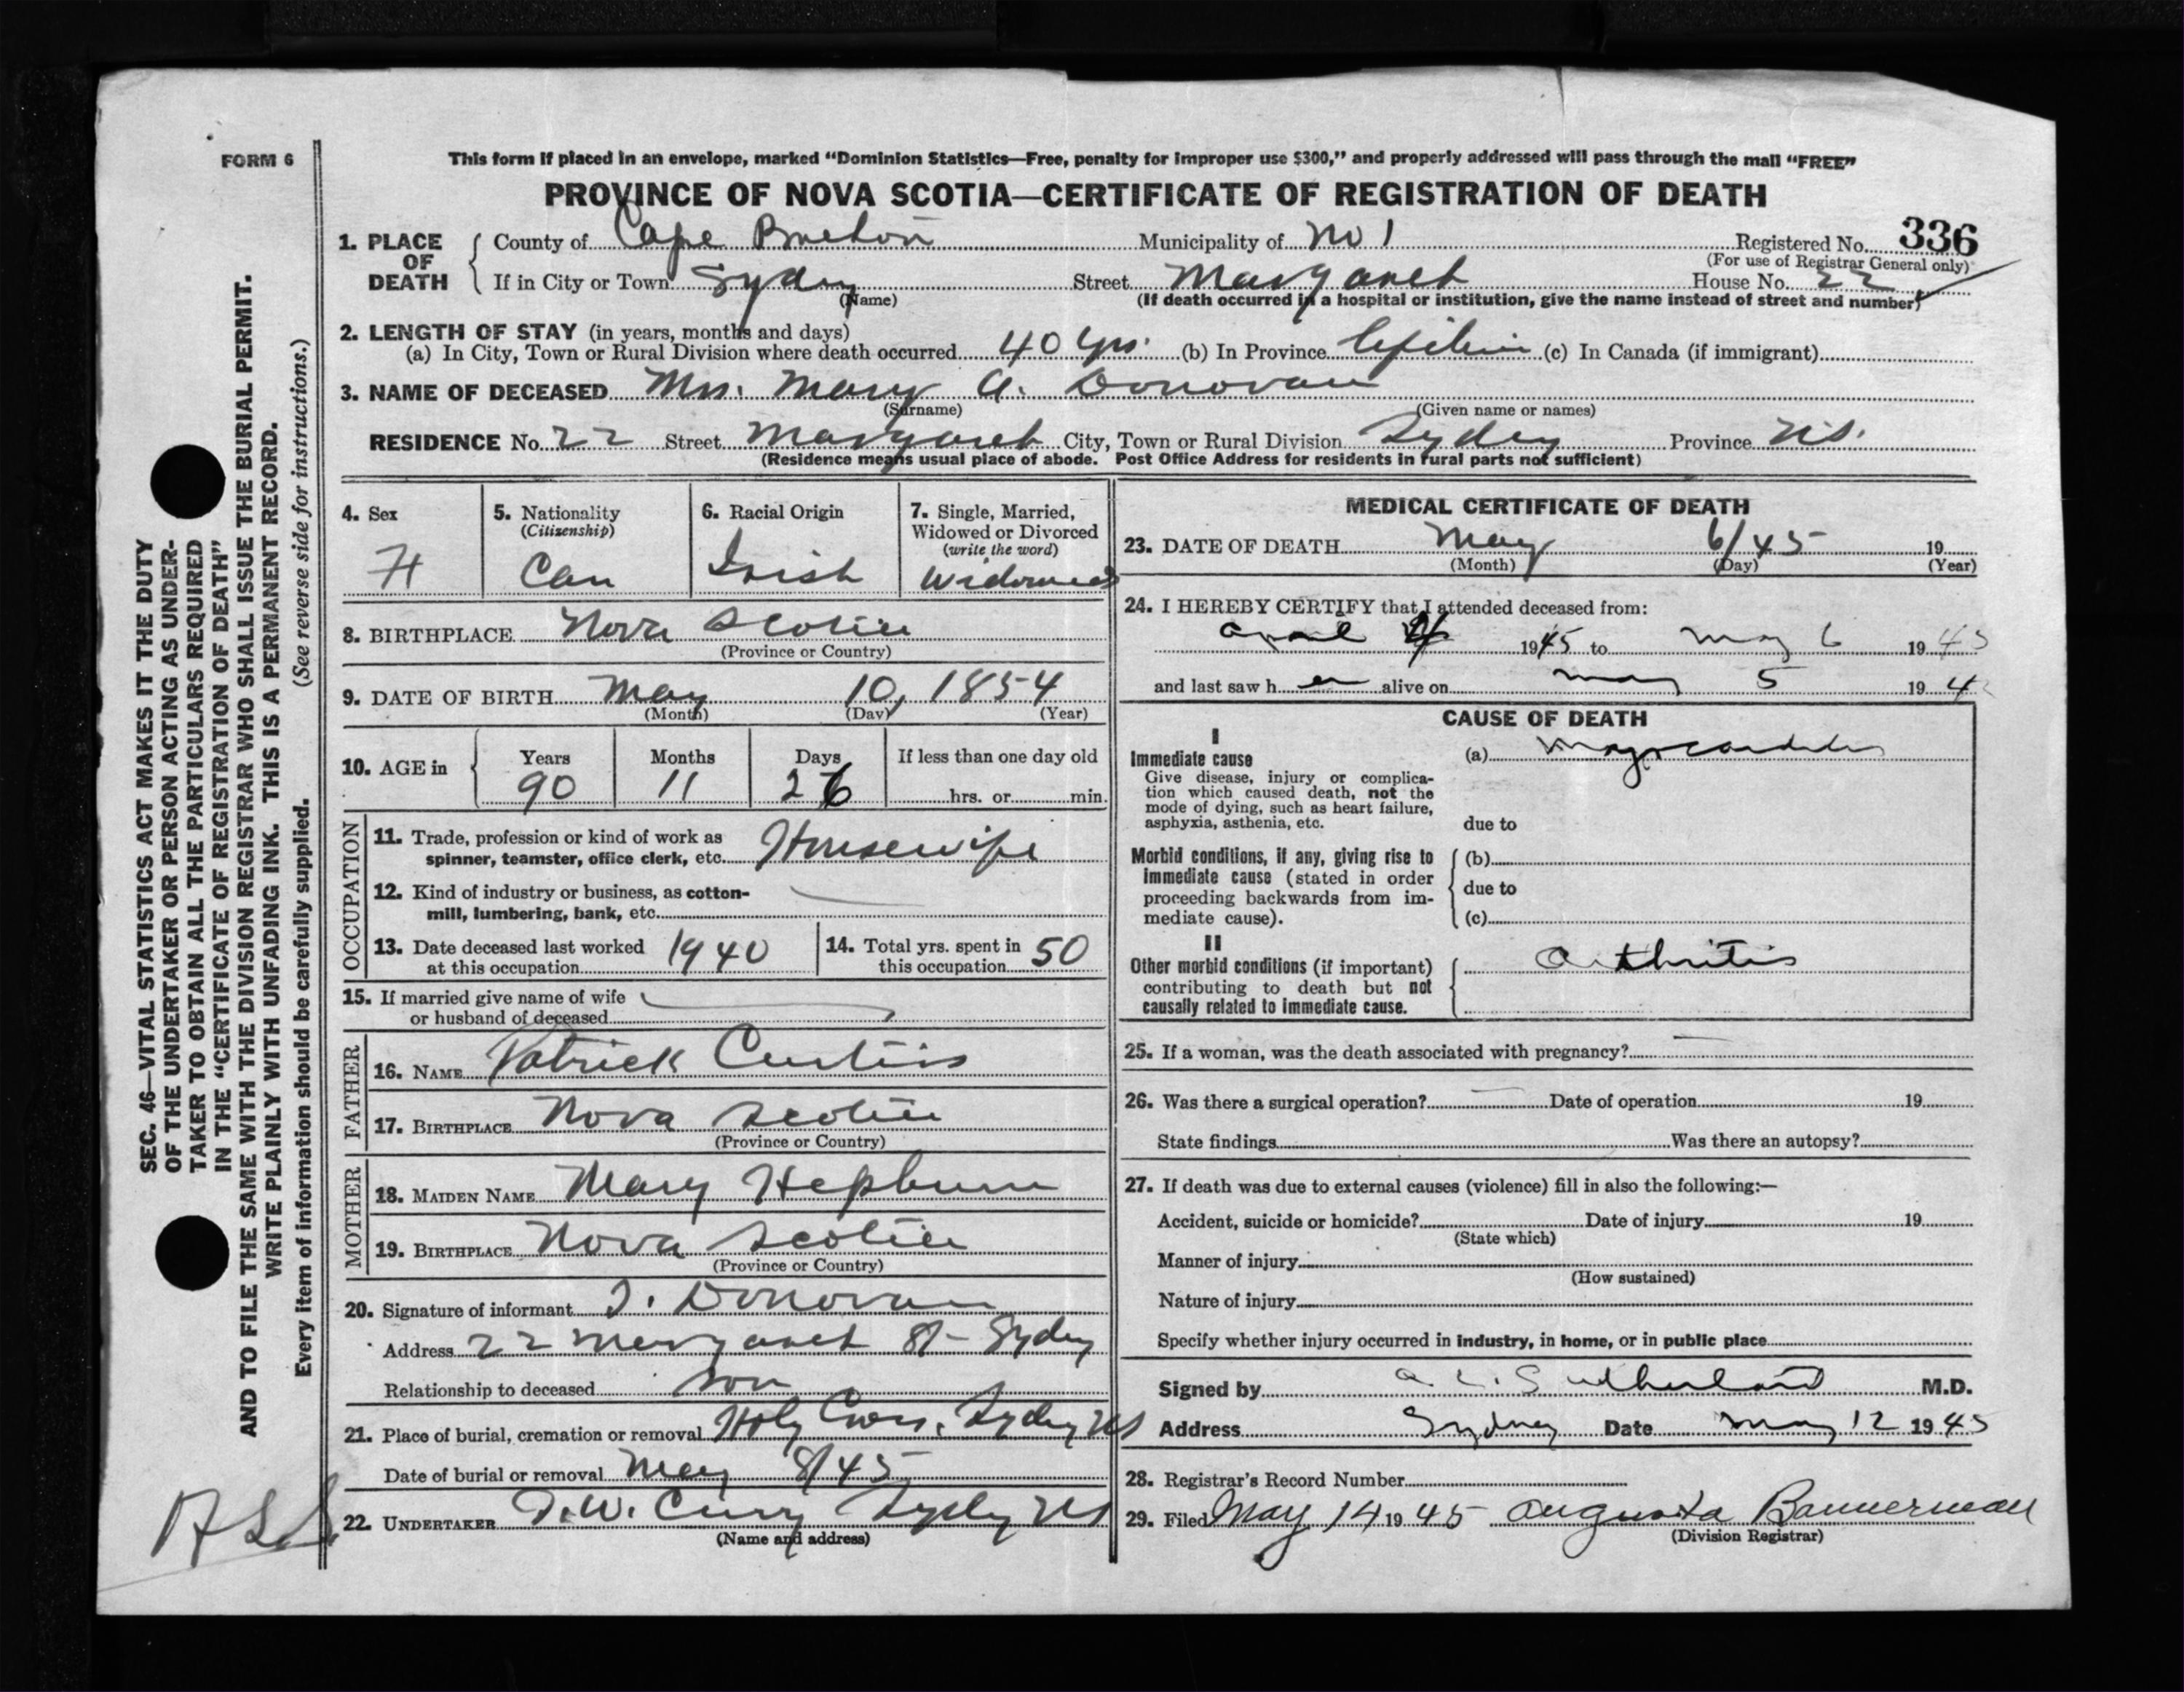 FORM 6
This form if placed in an envelope, marked “Dominion Statistics—Free, penalty for improper use $300,” and properly addressed will pass through the mail “FREE”
PROVINCE OF NOVA SCOTIA—CERTIFICATE OF REGISTRATION OF DEATH
1. PLACE OF DEATH County of Cape Breton Municipality of No 1 Registered No. 336
(For use of Registrar General only)
If in City or Town Sydney Street Margaret House No. 22
(Name) (If death occurred in a hospital or institution, give the name instead of street and number)
2. LENGTH OF STAY (in years, months and days)
(a) In City, Town or Rural Division where death occurred 40 yrs. (b) In Province Lifetime (c) In Canada (if immigrant)
3. NAME OF DECEASED Mrs. Mary A. Donovan
(Surname) (Given name or names)
RESIDENCE No. 22 Street Margaret City, Town or Rural Division Sydney Province N.S.
(Residence means usual place of abode. Post Office Address for residents in rural parts not sufficient)
4. Sex F
5. Nationality (Citizenship) Can
6. Racial Origin Irish
7. Single, Married, Widowed or Divorced (write the word) Widowed
8. BIRTHPLACE Nova Scotia
(Province or Country)
9. DATE OF BIRTH May 10, 1854
(Month) (Day) (Year)
10. AGE in Years 90 Months 11 Days 26 If less than one day old hrs. or min.
OCCUPATION
11. Trade, profession or kind of work as
spinner, teamster, office clerk, etc. Housewife
12. Kind of industry or business, as cotton-
mill, lumbering, bank, etc.
13. Date deceased last worked
at this occupation 1940
14. Total yrs. spent in
this occupation 50
15. If married give name of wife
or husband of deceased
FATHER
16. NAME Patrick Curtiis
17. BIRTHPLACE Nova Scotia
(Province or Country)
MOTHER
18. MAIDEN NAME Mary Hepburn
19. BIRTHPLACE Nova Scotia
(Province or Country)
20. Signature of informant J. Donovan
Address 22 Margaret St - Sydney
Relationship to deceased son
21. Place of burial, cremation or removal Holy Cross, Sydney NS
Date of burial or removal May 8/45
22. UNDERTAKER J.W. Curry Sydney NS
(Name and address)
MEDICAL CERTIFICATE OF DEATH
23. DATE OF DEATH May 6/45 19
(Month) (Day) (Year)
24. I HEREBY CERTIFY that I attended deceased from:
April 4 1945 to May 6 1945
and last saw her alive on May 5 194
CAUSE OF DEATH
I
Immediate cause
Give disease, injury or complica-
tion which caused death, not the
mode of dying, such as heart failure,
asphyxia, asthenia, etc.
(a) Myocarditis
due to
Morbid conditions, if any, giving rise to
immediate cause (stated in order
proceeding backwards from im-
mediate cause).
(b)
due to
(c)
II
Other morbid conditions (if important)
contributing to death but not
causally related to immediate cause.
Arthritis
25. If a woman, was the death associated with pregnancy?
26. Was there a surgical operation? Date of operation 19
State findings Was there an autopsy?
27. If death was due to external causes (violence) fill in also the following:—
Accident, suicide or homicide? Date of injury 19
(State which)
Manner of injury
(How sustained)
Nature of injury
Specify whether injury occurred in industry, in home, or in public place
Signed by A. L. Sutherland M.D.
Address Sydney Date May 12 1945
28. Registrar's Record Number
29. Filed May 14 1945 Augusta Bannerman
(Division Registrar)
SEC. 46—VITAL STATISTICS ACT MAKES IT THE DUTY
OF THE UNDERTAKER OR PERSON ACTING AS UNDER-
TAKER TO OBTAIN ALL THE PARTICULARS REQUIRED
IN THE “CERTIFICATE OF REGISTRATION OF DEATH”
AND TO FILE THE SAME WITH THE DIVISION REGISTRAR WHO SHALL ISSUE THE BURIAL PERMIT.
WRITE PLAINLY WITH UNFADING INK. THIS IS A PERMANENT RECORD.
Every item of information should be carefully supplied. (See reverse side for instructions.)